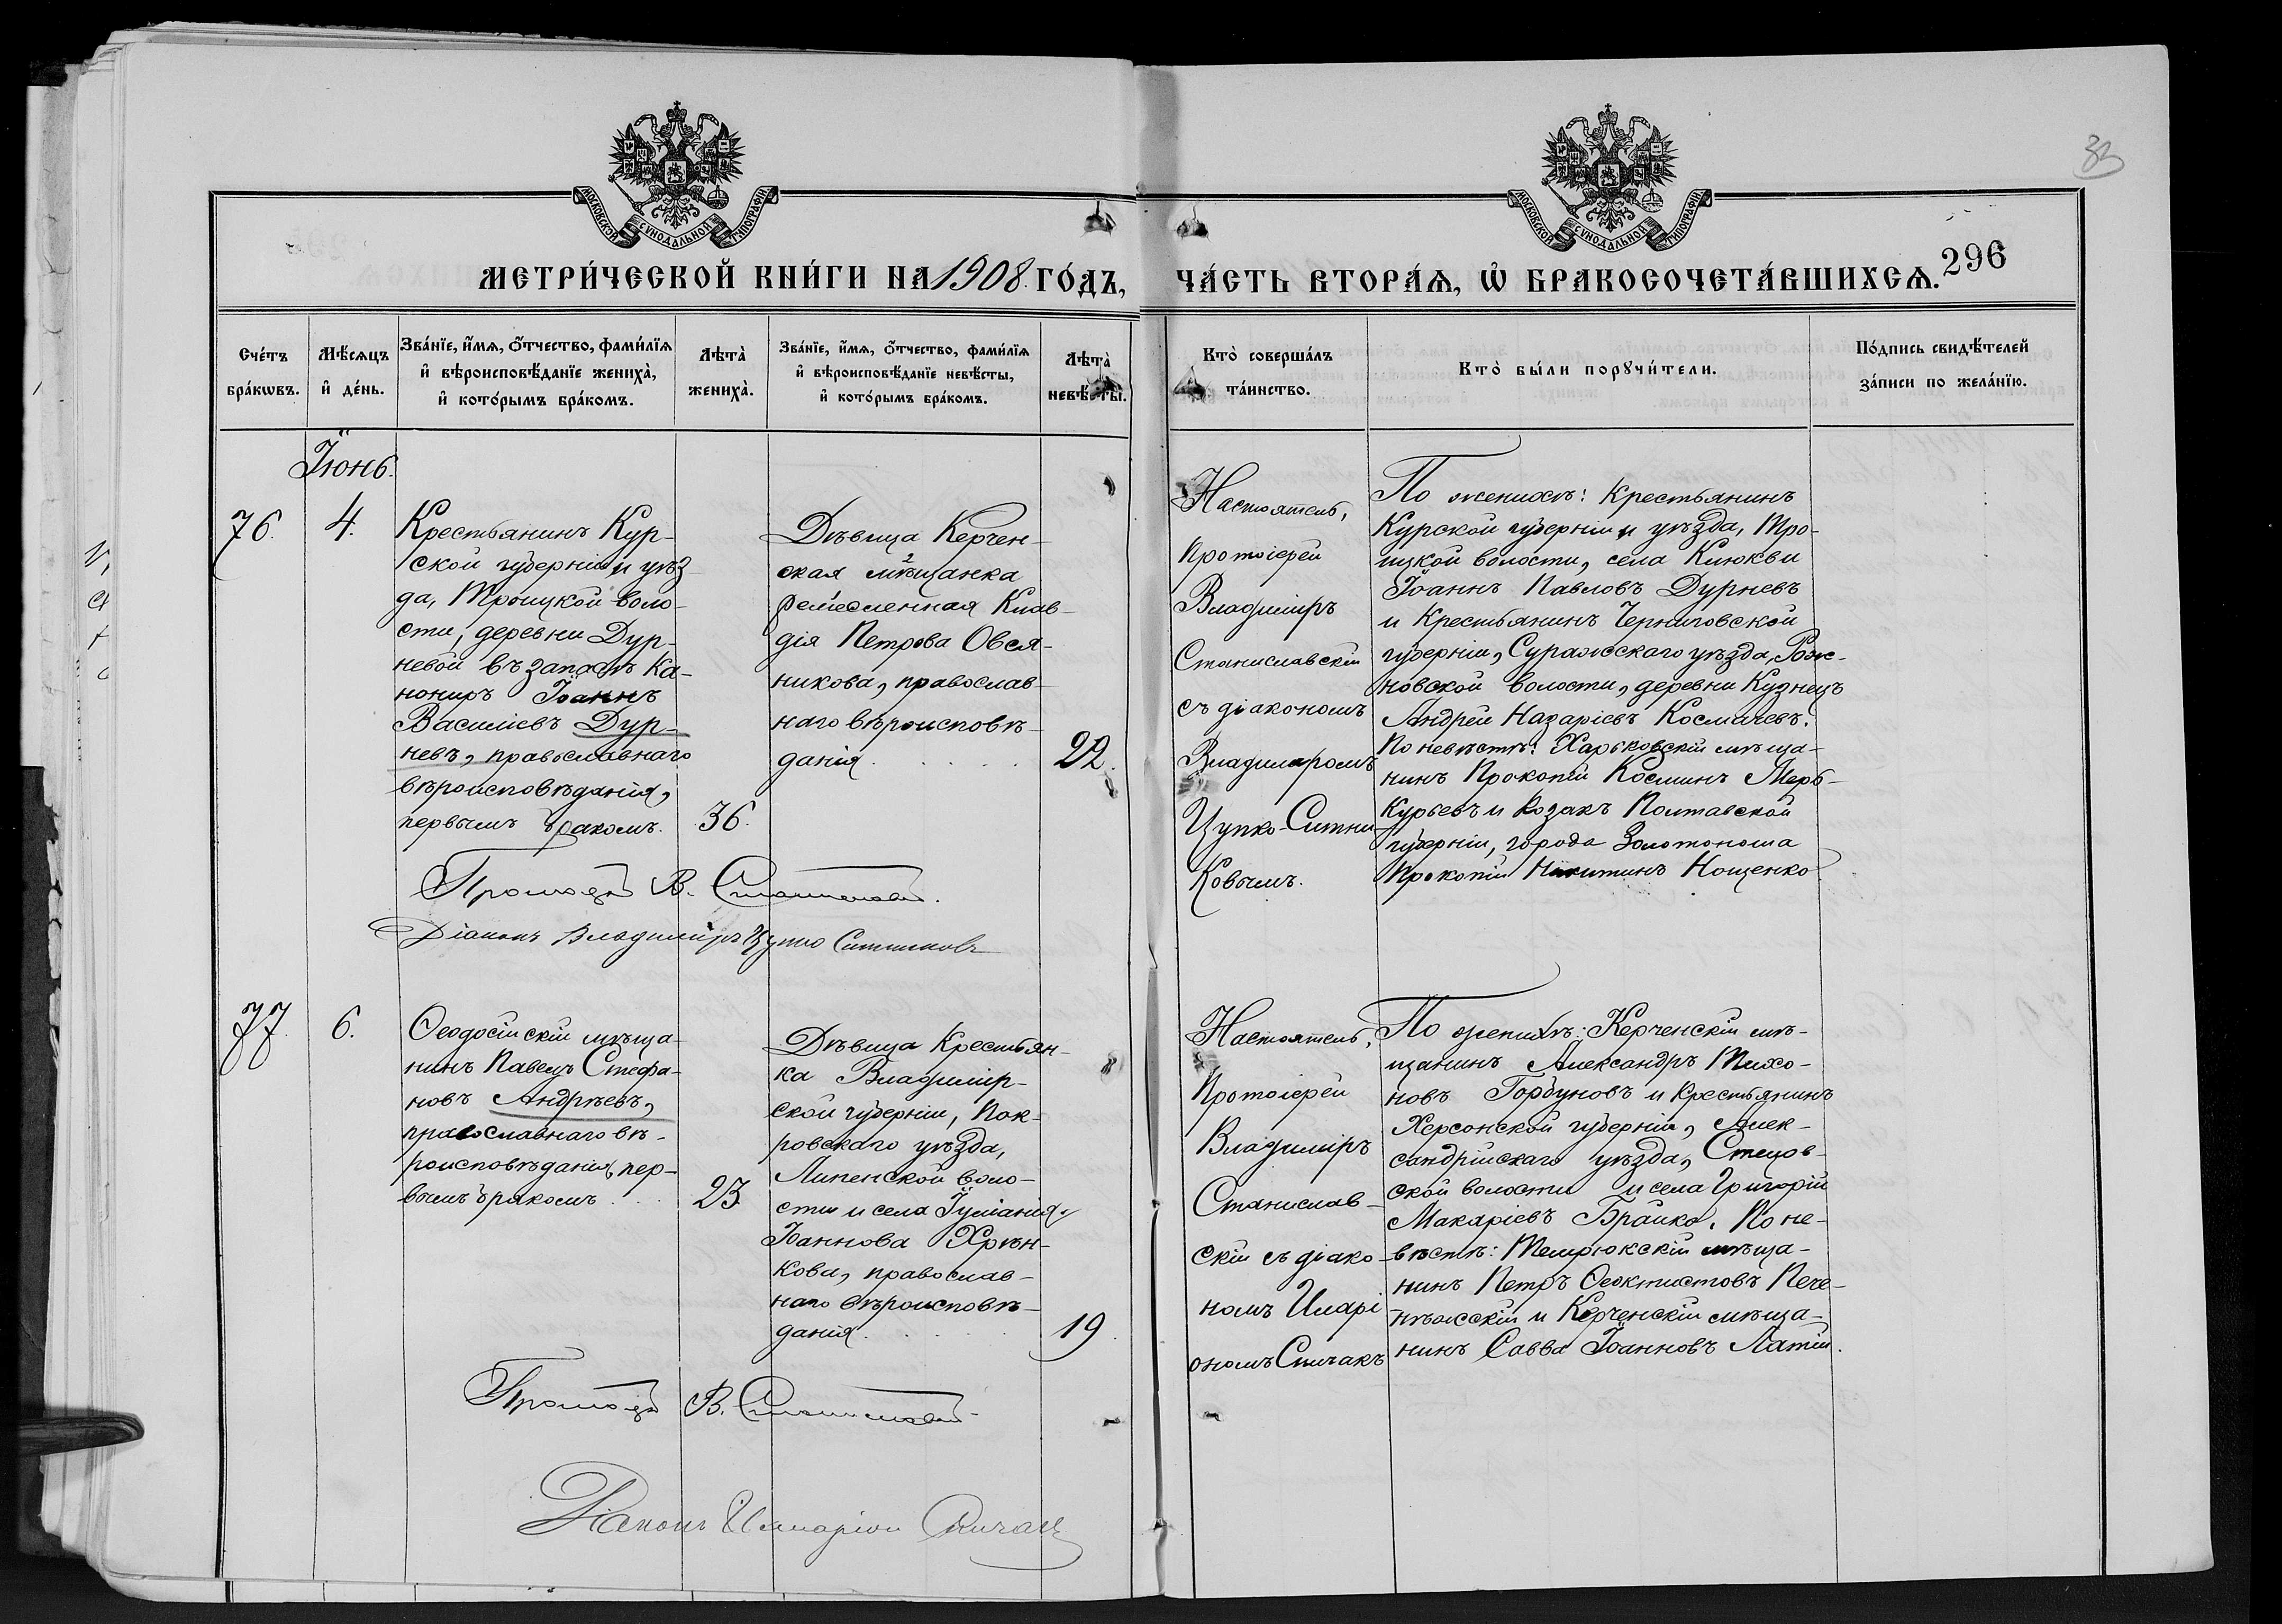 33
МОСКОВСКОЙ СУНОДАЛЬНОЙ ТИПОГРАФІИ.
МОСКОВСКОЙ СУНОДАЛЬНОЙ ТИПОГРАФІИ.
МЕТРИ́ЧЕСКОЙ КНИ́ГИ НА 1908 ГО́ДЪ,
ЧА́СТЬ ВТОРА́Ѧ, Ѽ БРАКОСОЧЕТА́ВШИХСѦ.
296
Сче́тъ
бра́кѡвъ.
Мѣ́сѧцъ
и҆ де́нь.
Зва́нїе, и҆́мѧ, ѻ҆́тчество, фами́лїѧ
и҆ вѣроисповѣ́данїе жениха̀,
и҆ кото́рымъ бра́комъ.
Лѣта̀
жениха̀.
Зва́нїе, и҆́мѧ, ѻ҆́тчество, фами́лїѧ
и҆ вѣроисповѣ́данїе невѣ́сты,
и҆ кото́рымъ бра́комъ.
Лѣта̀
невѣ́сты.
Кто̀ соверша́лъ
та́инство.
Кто̀ бы́ли порꙋчи́тели.
По́дпись свидѣ́телей
за́писи по жела́нїю.
Іюнь.
76.
4.
Крестьянинъ Кур-
ской губерніи и уѣз-
да, Троицкой воло-
сти, деревни Дур-
невой въ запасѣ ка-
нониръ Іоаннъ
Василіевъ Дур-
невъ, православнаго
вѣроисповѣданія,
первымъ бракомъ.
36.
Дѣвица Керчен-
ская мѣщанка
ремесленная Клав-
дія Петрова Овся-
никова, православ-
наго вѣроисповѣ-
данія
22.
Настоятель,
протоіерей
Владиміръ
Станиславскій
съ діакономъ
Владиміромъ
Цупко-Ситни-
ковымъ.
По женихѣ: Крестьянинъ
Курской губерніи и уѣзда, Тро-
ицкой волости, села Клюкви
Іоаннъ Павловъ Дурневъ
и Крестьянинъ Черниговской
губерніи, Суражскаго уѣзда, Рож-
новской волости, деревни Кузнецъ
Андрей Назаріевъ Космачевъ.
По невѣстѣ: Харьковскій мѣща-
нинъ Прокопій Косминъ Мерб-
Курьевъ и Козакъ Полтавской
губерніи, города Золотоноша
Прокопій Никитинъ Нощенко
Протоіерей В. Станиславскій.
Діаконъ Владиміръ Цупко Ситниковъ
77.
6.
Ѳеодосійскій мѣща-
нинъ Павелъ Стефа-
новъ Андрѣевъ,
православнаго вѣ-
роисповѣданія, пер-
вымъ бракомъ
23.
Дѣвица Крестьян-
ка Владимір-
ской губерніи, Пок-
ровскаго уѣзда,
Липенской воло-
сти и села Іуліанія
Іоаннова Хрѣн-
кова, православ-
наго вѣроисповѣ-
данія
19.
Настоятель,
Протоіерей
Владиміръ
Станислав-
скій съ діако-
номъ Иларі
ономъ Спичакъ
По женихѣ: Керченскій мѣ-
щанинъ Александръ Тихо-
новъ Горбуновъ и Крестьянинъ
Херсонской губерніи, Алек-
сандрійскаго уѣзда, Стецов-
ской волости и села Григорій
Макаріевъ Брайко. По не-
вѣстѣ: Темрюкскій мѣща-
нинъ Петръ Ѳеоктистовъ Пече-
нѣжскій и Керченскій мѣща-
нинъ Савва Іоанновъ Латій.
Протоіерей В. Станиславскій
Діаконъ Иларіонъ Спичакъ